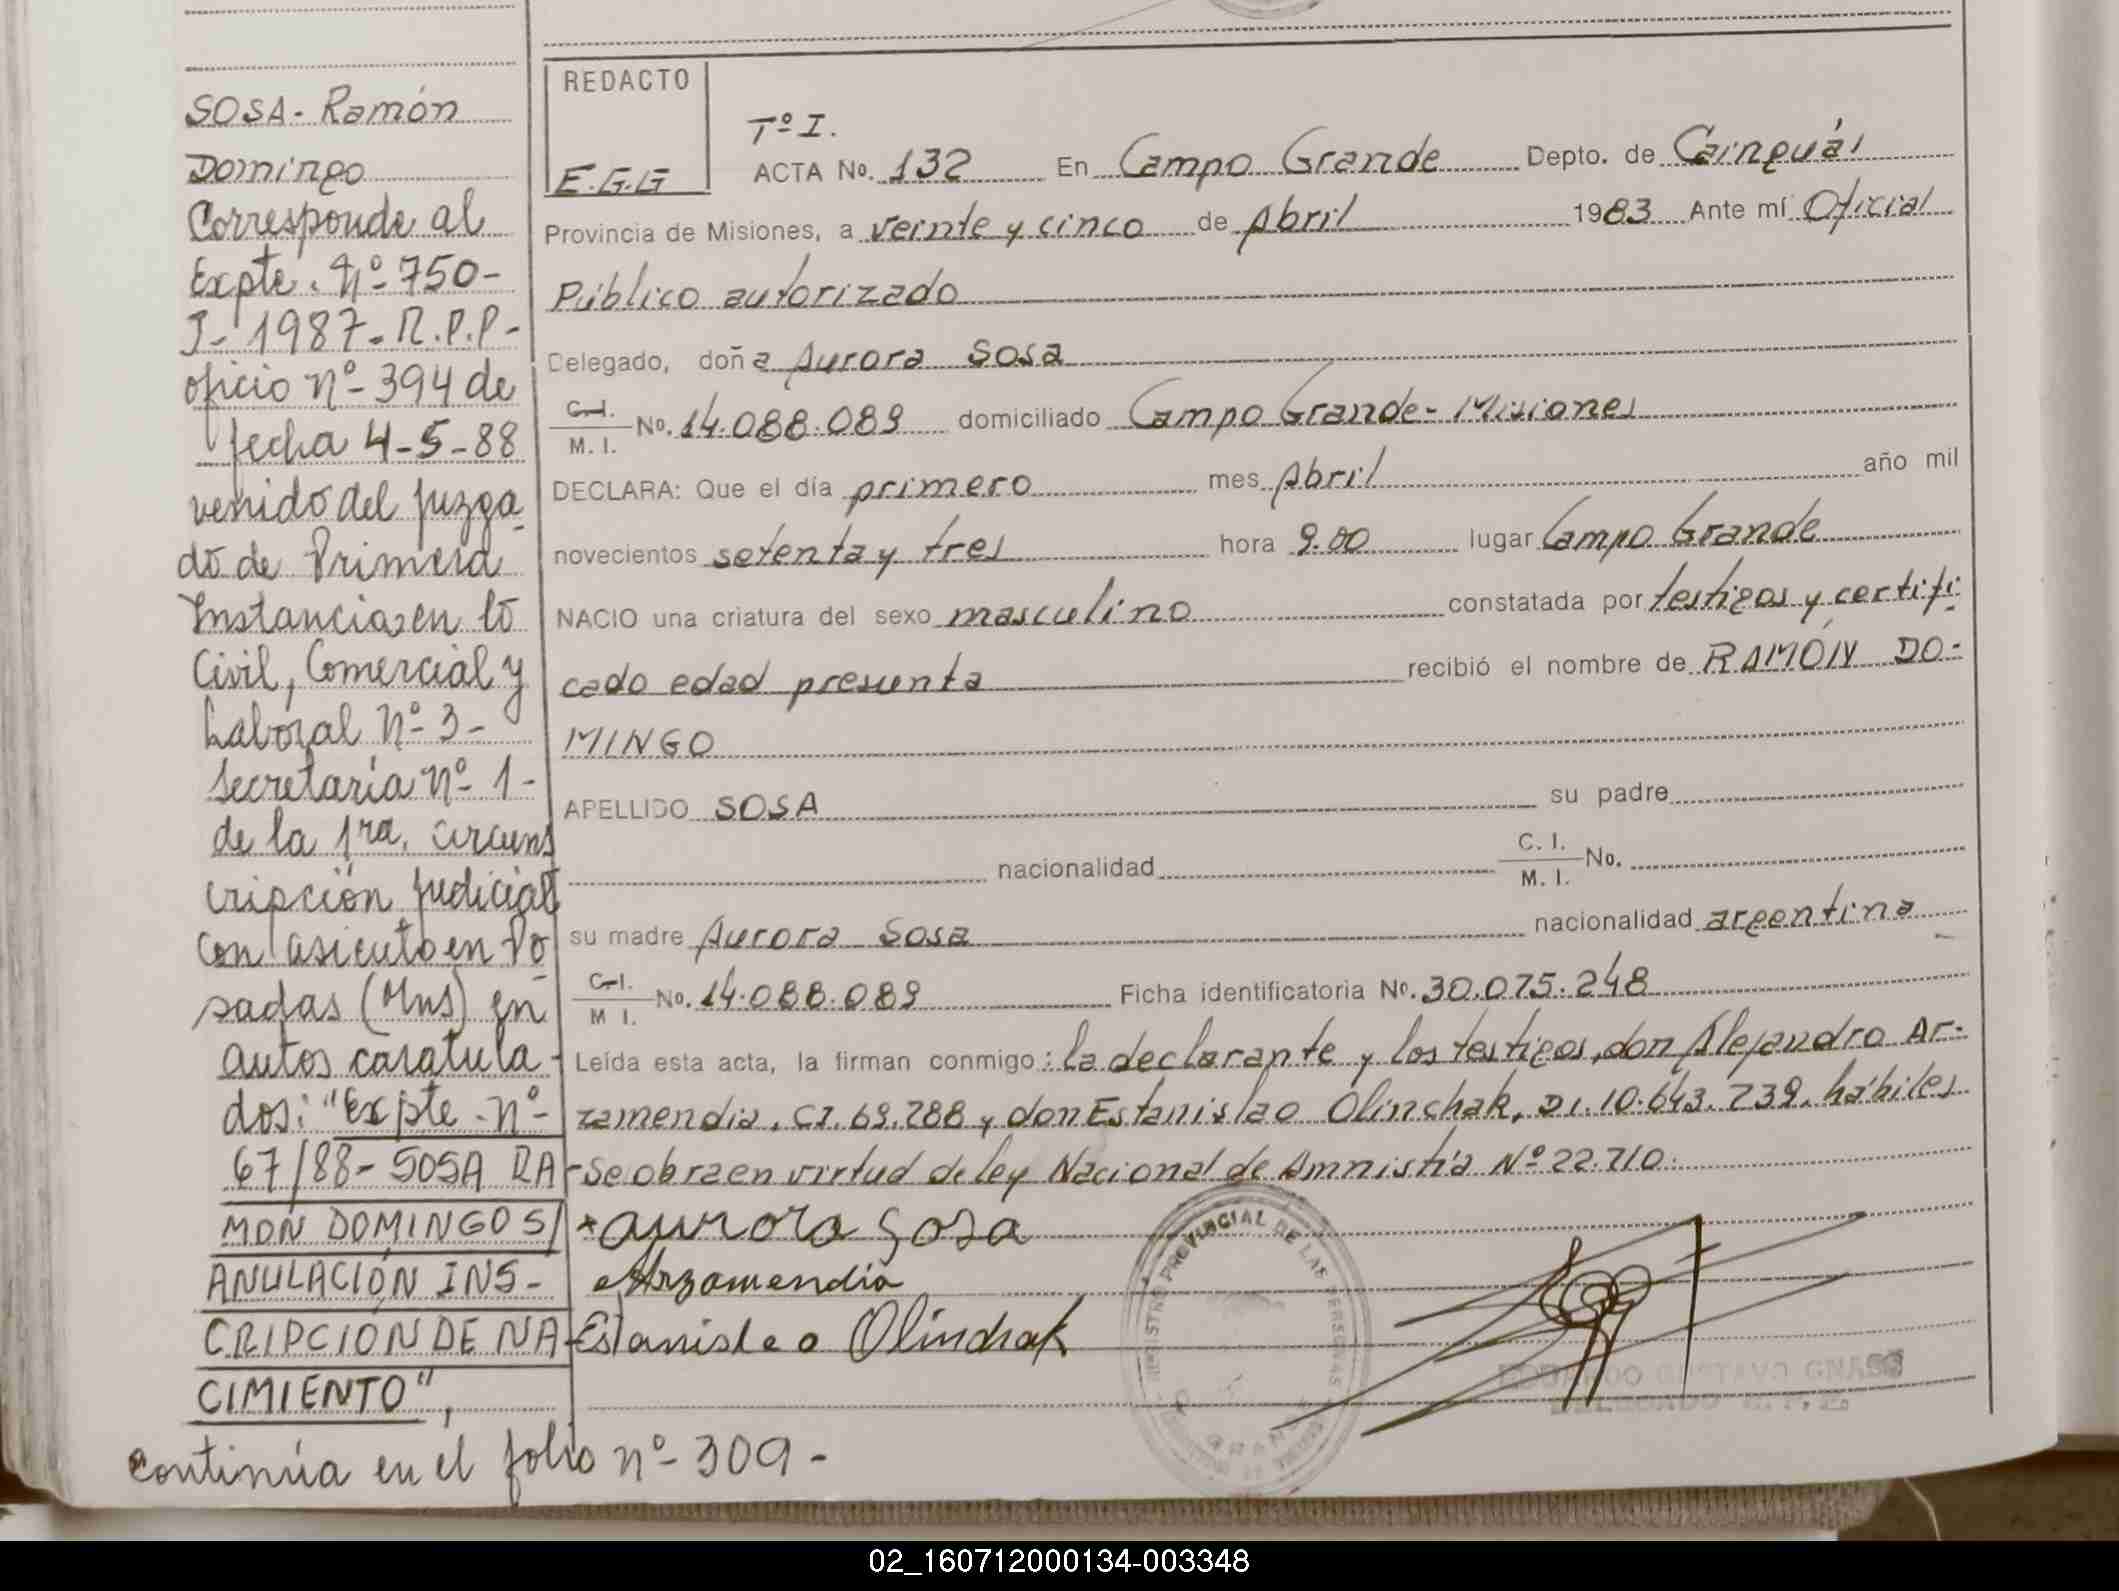 SOSA- Ramón
Domingo
Corresponde al
Expte. Nº-750-
J-1987-R.P.P-
oficio nº-394 de
fecha 4-5-88
venido del juzga-
do de Primera
Instancia en lo
Civil, Comercial y
Laboral Nº-3-
Secretaría Nº-1-
de la 1ra. circuns
cripción judicial
con asiento en Po-
sadas (Mns) en
autos caratula-
dos: "Expte-nº-
67/88-SOSA RA-
MON DOMINGO S/
ANULACIÓN INS-
CRIPCION DE NA-
CIMIENTO",
continúa en el folio nº-309-
REDACTO
E.G.G
Tº I.
ACTA No. 132 En Campo Grande Depto. de Cainguás
Provincia de Misiones, a veinte y cinco de Abril 1983 Ante mí Oficial
Público autorizado
Delegado, doña Aurora Sosa
C.I.
M. I. No. 14.088.089 domiciliado Campo Grande-Misiones
DECLARA: Que el día primero mes Abril año mil
novecientos setenta y tres hora 9.00 lugar Campo Grande
NACIO una criatura del sexo masculino constatada por testigos y certifi-
cado edad presunta recibió el nombre de RAMÓN DO-
MINGO
APELLIDO SOSA su padre
nacionalidad C. I.
M. I. No.
su madre Aurora Sosa nacionalidad argentina
C.I.
M I. No. 14.088.089 Ficha identificatoria No. 30.075.248
Leída esta acta, la firman conmigo: la declarante y los testigos, don Alejandro Ar-
zamendia, CI. 69.288 y don Estanislao Olinchak, DI. 10.643.739. hábiles
-Se obra en virtud de ley Nacional de Amnistía Nº 22.710.
x aurora Sosa
Arzamendia
Estanislao Olinchak
REGISTRO PROVINCIAL DE LAS PERSONAS
EDUARDO GUSTAVO GNASS
DELEGADO
02_160712000134-003348